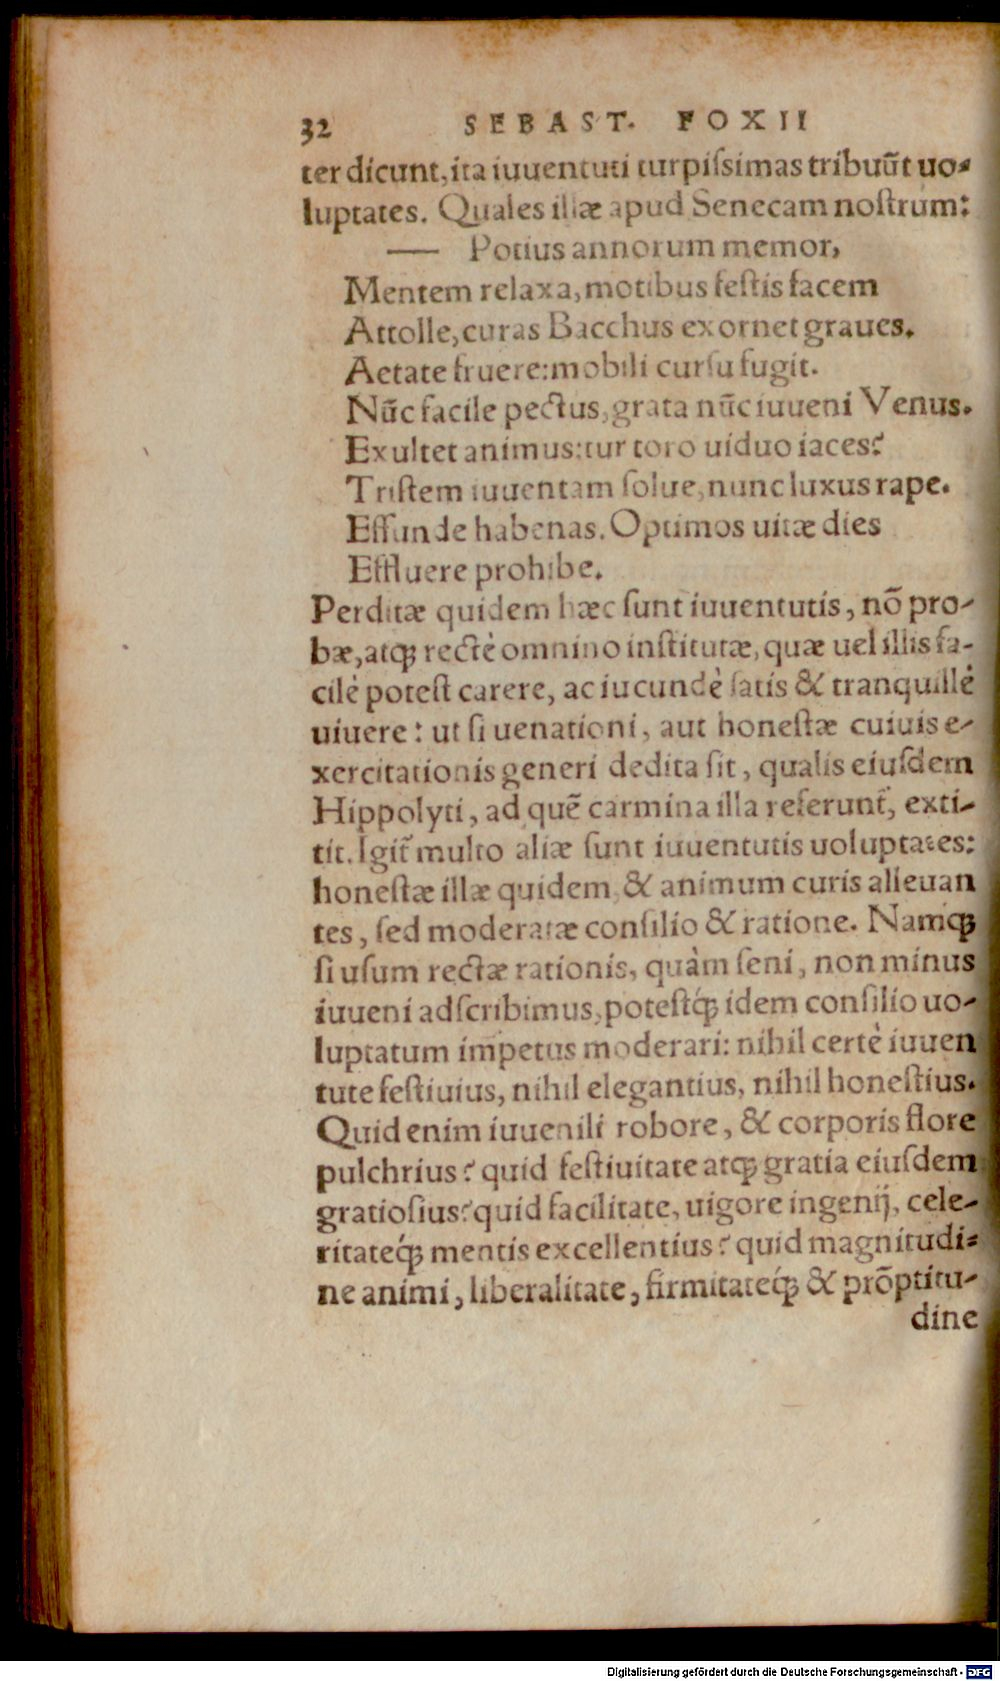 32 SEBAST. FOXII
ter dicunt, ita iuuentuti turpiſsimas tribuūt uo-
luptates. Quales illæ apud Senecam noſtrum:
— Potius annorum memor,
Mentem relaxa, motibus feſtis facem
Attolle, curas Bacchus exornet graues.
Aetate fruere: mobili curſu fugit.
Nūc facile pectus, grata nūc iuueni Venus.
Exultet animus: cur toro uiduo iaces?
Triſtem iuuentam ſolue, nunc luxus rape.
Effunde habenas. Optimos uitæ dies
Effluere prohibe.
Perditæ quidem hæc ſunt iuuentutis, nō pro-
bæ, atq́ꝫ rectè omnino inſtitutæ, quæ uel illis fa-
cilè poteſt carere, ac iucundè ſatis & tranquillè
uiuere: ut ſi uenationi, aut honeſtæ cuiuis e-
xercitationis generi dedita ſit, qualis eiuſdem
Hippolyti, ad quē carmina illa referunt, exti-
tit. Igit̃ multo aliæ ſunt iuuentutis uoluptates:
honeſtæ illæ quidem, & animum curis alleuan
tes, ſed moderatæ conſilio & ratione. Namqꝫ
ſi uſum rectæ rationis, quàm ſeni, non minus
iuueni adſcribimus, poteſtq́ꝫ idem conſilio uo-
luptatum impetus moderari: nihil certè iuuen
tute feſtiuius, nihil elegantius, nihil honeſtius.
Quid enim iuuenili robore, & corporis flore
pulchrius? quid feſtiuitate atqꝫ gratia eiuſdem
gratioſius? quid facilitate, uigore ingenij, cele-
ritateq́ꝫ mentis excellentius? quid magnitudi-
ne animi, liberalitate, firmitateq́ꝫ & prōptitu-
dine
Digitalisierung gefördert durch die Deutsche Forschungsgemeinschaft - DFG